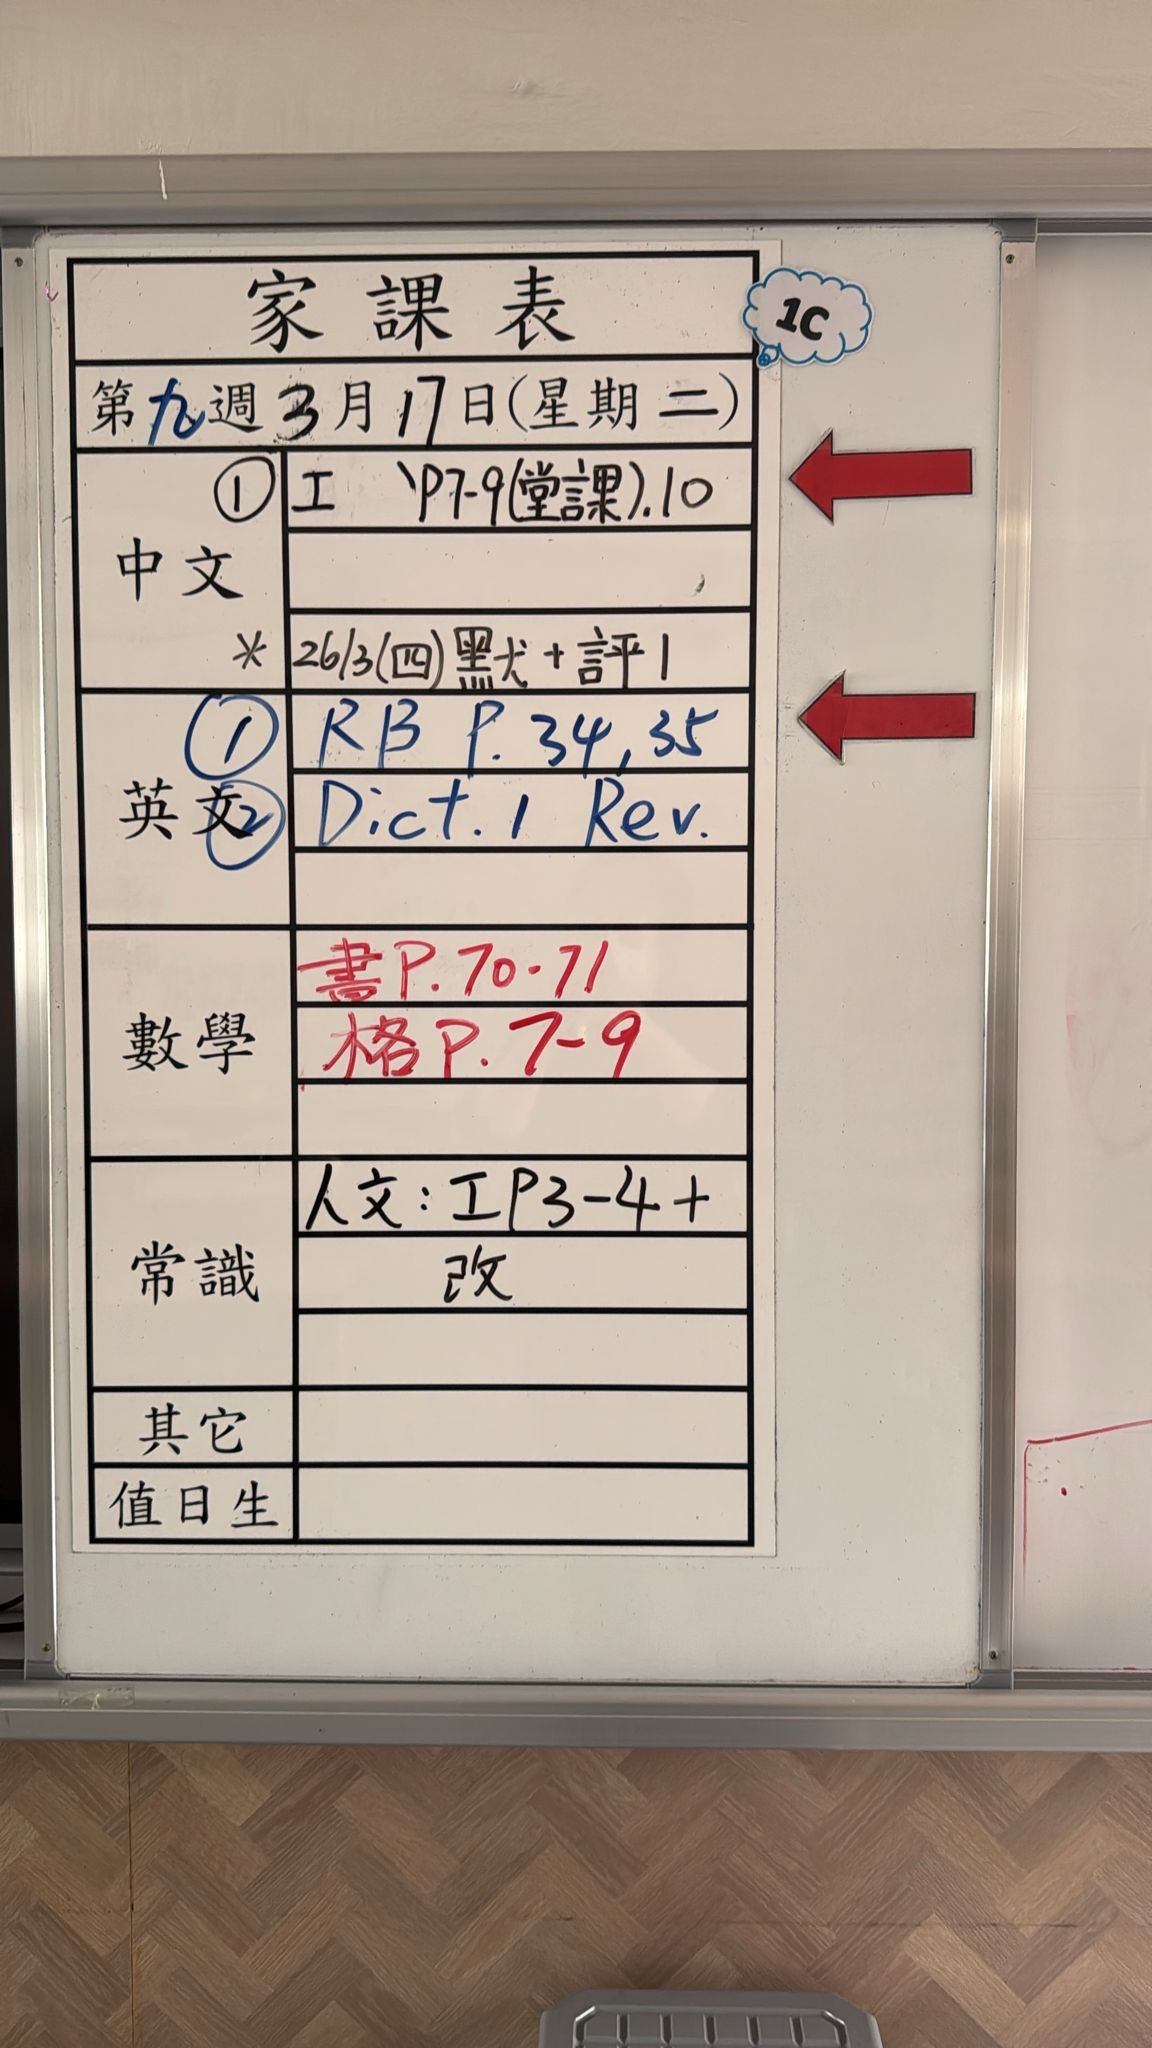 家課表
1C
第九週3月17日(星期二)
中文
① 工 、P7-9(堂課).10
* 26/3(四)黑犬+評1
英文
① RB P. 34, 35
② Dict. 1 Rev.
數學
書P. 70-71
格P. 7-9
常識
人文：工P3-4+
改
其它
值日生